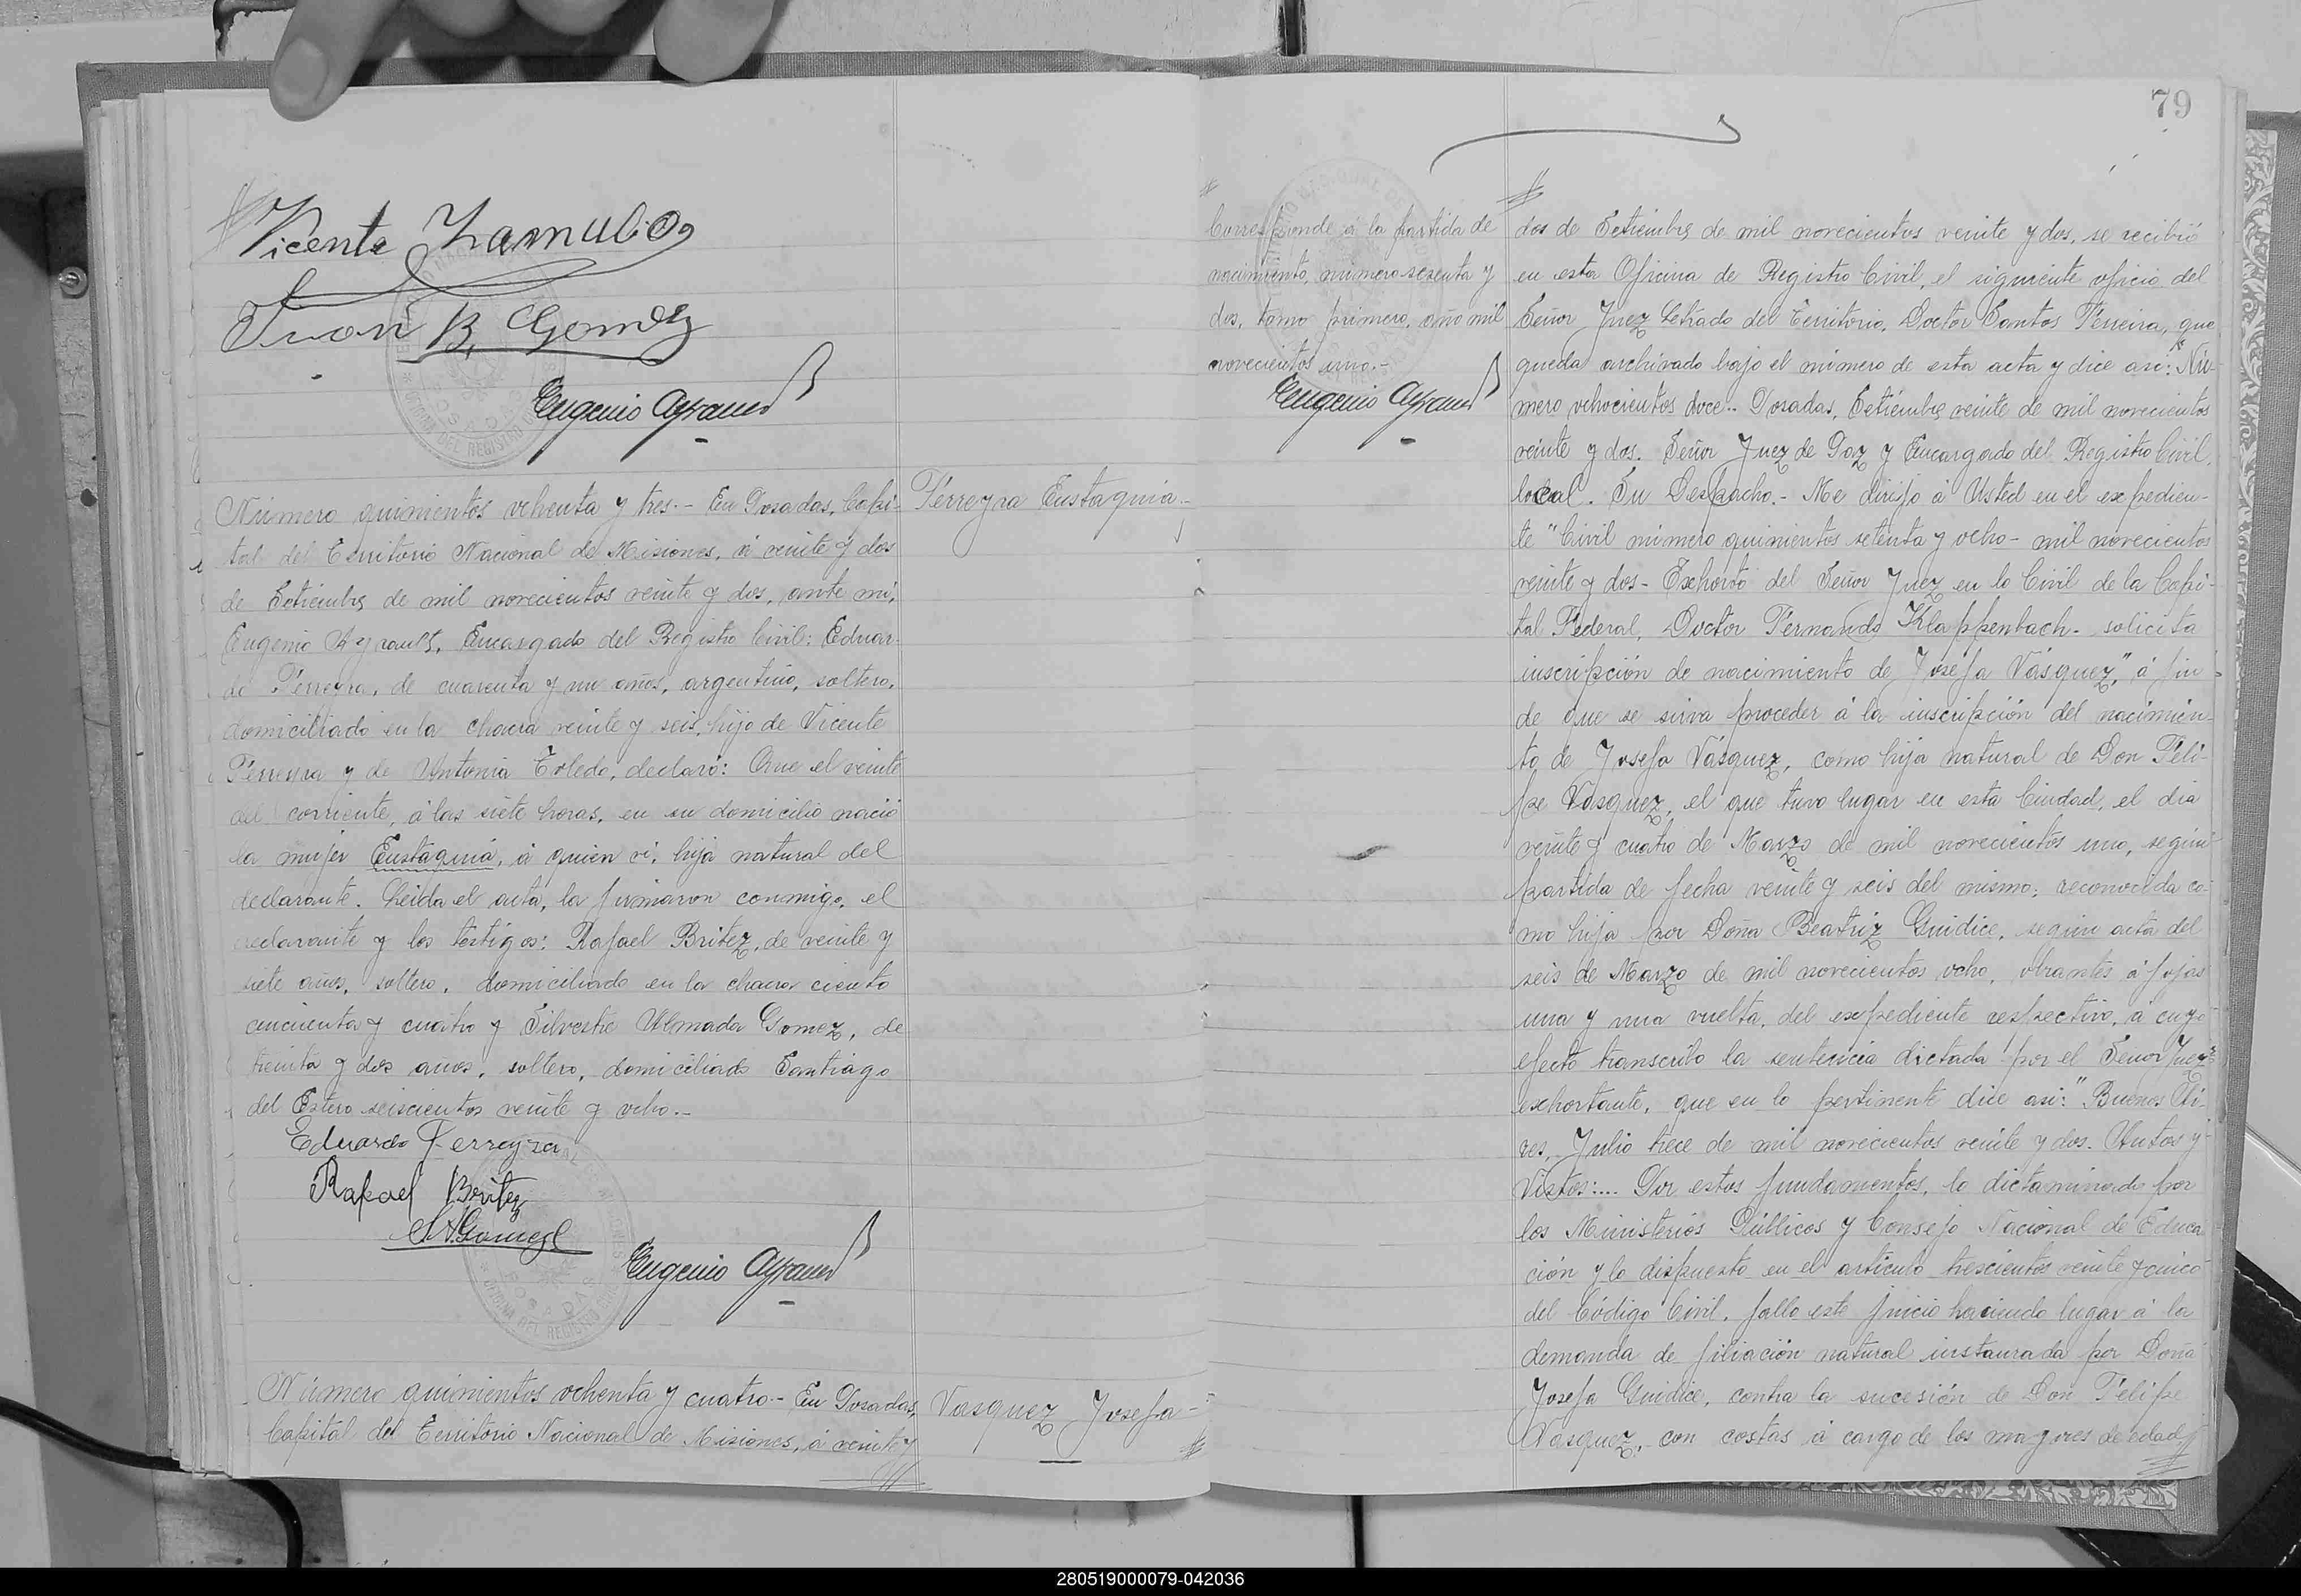 Vicente Zamulio
Juan B. Gomez
Eugenio Ayrault
Número quinientos ochenta y tres.- En Posadas, Capi-
tal del Territorio Nacional de Misiones, á veinte y dos
de Setiembre de mil novecientos veinte y dos, ante mí,
Eugenio Ayrault, Encargado del Registro Civil: Eduar-
do Ferreyra, de cuarenta y un años, argentino, soltero,
domiciliado en la chacra veinte y seis, hijo de Vicente
Ferreyra y de Antonia Toledo, declaró: Que el veinte
del corriente, á las siete horas, en su domicilio nació
la mujer Eustaquia, á quien vi, hija natural del
declarante. Leida el acta, la firmaron conmigo, el
declarante y los testigos: Rafael Britez, de veinte y
siete años, soltero, domiciliado en la chacra ciento
cincuenta y cuatro y Silvestre Almada Gomez, de
treinta y dos años, soltero, domiciliado Santiago
del Estero seiscientos veinte y ocho.-
Eduardo Ferreyra
Rafael Britez
S. A. Gomez
Eugenio Ayrault
Número quinientos ochenta y cuatro.- En Posadas,
Capital del Territorio Nacional de Misiones, á veinte y
Ferreyra Eustaquia.-
Vasquez Josefa-
79
Corresponde á la partida de
nacimiento, número sesenta y
dos, tomo primero, año mil
novecientos uno.-
Eugenio Ayrault
dos de Setiembre de mil novecientos veinte y dos, se recibió
en esta Oficina de Registro Civil, el siguiente oficio del
Señor Juez Letrado del Territorio, Doctor Santos Ferreira, que
queda archivado bajo el número de esta acta y dice así: "Nú-
mero ochocientos doce.- Posadas, Setiembre veinte de mil novecientos
veinte y dos. Señor Juez de Paz y Encargado del Registro Civil,
local. Su Despacho.- Me dirijo á Usted en el expedien-
te "Civil número quinientos setenta y ocho- mil novecientos
veinte y dos- Exhorto del Señor Juez en lo Civil de la Capi-
tal Federal, Doctor Fernando Klappenbach- solicita
inscripción de nacimiento de Josefa Vásquez," á fin
de que se sirva proceder á la inscripción del nacimien-
to de Josefa Vásquez, como hija natural de Don Feli-
pe Vásquez, el que tuvo lugar en esta Ciudad, el dia
veinte y cuatro de Marzo de mil novecientos uno, según
partida de fecha veinte y seis del mismo; reconocida co-
mo hija por Doña Beatriz Guidice, según acta del
seis de Marzo de mil novecientos ocho, obrantes á fojas
una y una vuelta, del expediente respectivo, á cuyo
efecto transcribo la sentencia dictada por el Señor Juez
exhortante, que en lo pertinente dice así: "Buenos Ai-
res, Julio trece de mil novecientos veinte y dos. Autos y
Vistos:... Por estos fundamentos, lo dictaminado por
los Ministerios Públicos y Consejo Nacional de Educa-
ción y lo dispuesto en el artículo trescientos veinte y cinco
del Código Civil, fallo este juicio haciendo lugar á la
demanda de filiación natural instaurada por Doña
Josefa Guidice, contra la sucesión de Don Felipe
Vásquez, con costas á cargo de los mayores de edad
280519000079-042036